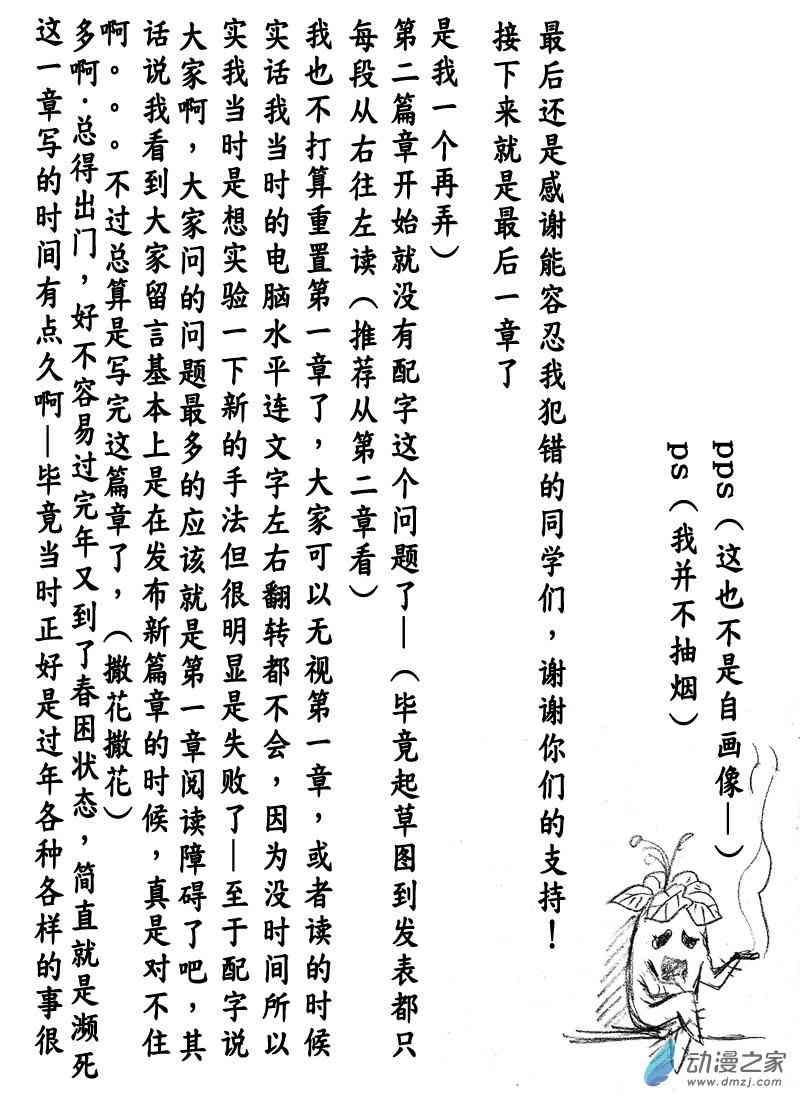 这一章写的时间有点久啊—毕竟当时正好是过年各种各样的事很
多啊.总得出门，好不容易过完年又到了春困状态，简直就是濒死
啊。。。不过总算是写完这篇章了，（撒花撒花）
话说我看到大家留言基本上是在发布新篇章的时候，真是对不住
大家啊，大家问的问题最多的应该就是第一章阅读障碍了吧，其
实我当时是想实验一下新的手法但很明显是失败了—至于配字说
实话我当时的电脑水平连文字左右翻转都不会，因为没时间所以
我也不打算重置第一章了，大家可以无视第一章，或者读的时候
每段从右往左读（推荐从第二章看）
第二篇章开始就没有配字这个问题了—（毕竟起草图到发表都只
是我一个再弄）
接下来就是最后一章了
最后还是感谢能容忍我犯错的同学们，谢谢你们的支持！
ps（我并不抽烟）
pps（这也不是自画像—）
动漫之家
www.dmzj.com